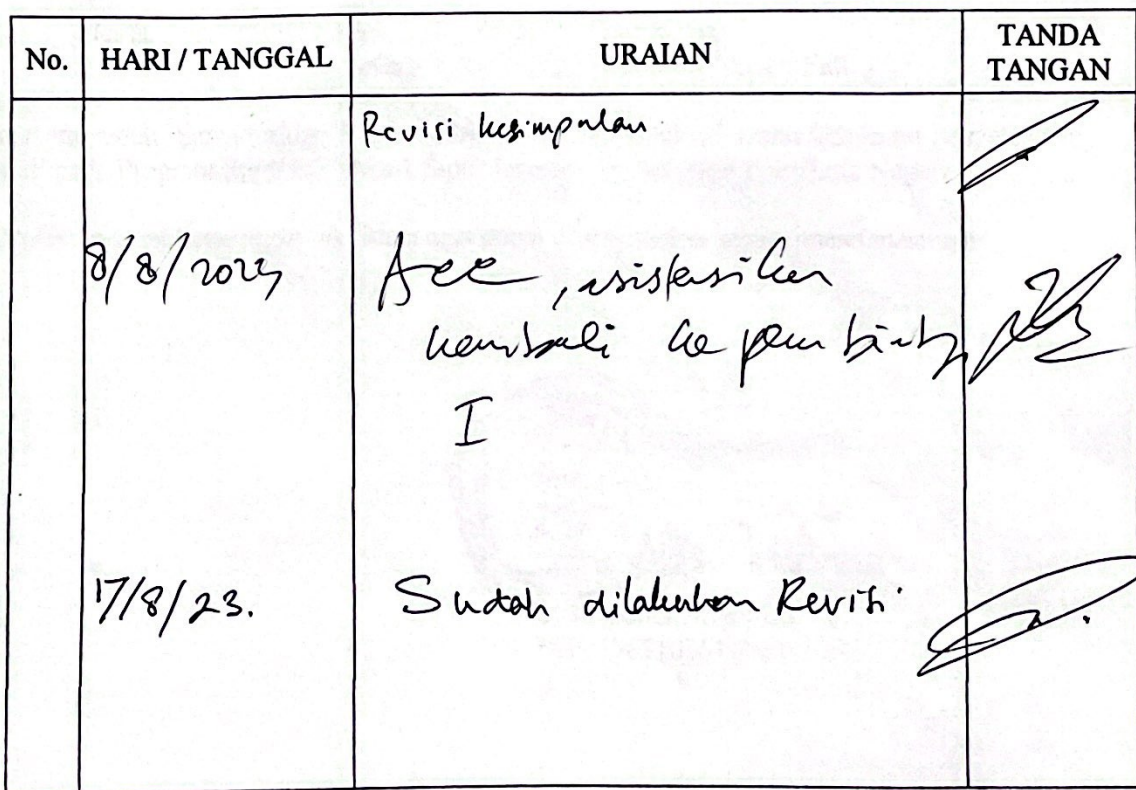 No. HARI / TANGGAL URAIAN TANDA TANGAN
Revisi kesimpulan.
8/8/2023 Acc, asistensikan
kembali ke pembimbing
I
17/8/23. Sudah dilakukan Revisi.